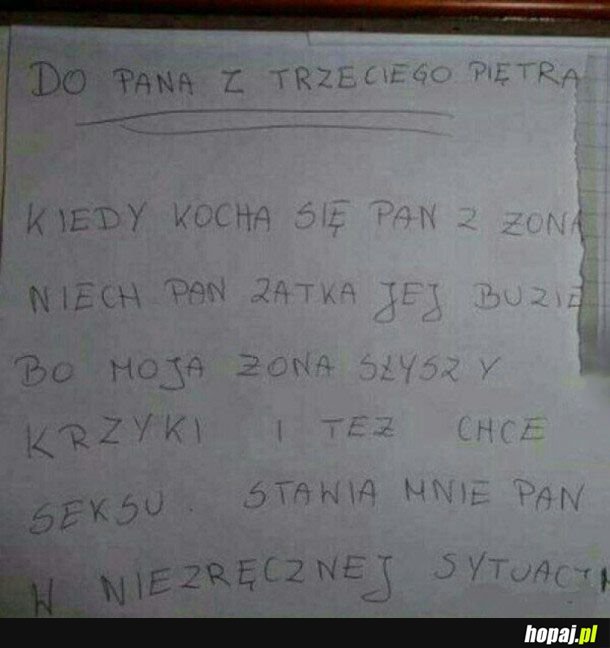 DO PANA Z TRZECIEGO PIĘTRA
KIEDY KOCHA SIĘ PAN Z ZONA
NIECH PAN ZATKA JEJ BUZIE
BO MOJA ZONA SŁYSZY
KRZYKI I TEZ CHCE
SEKSU. STAWIA MNIE PAN
W NIEZRĘCZNEJ SYTUACJI
hopaj.pl